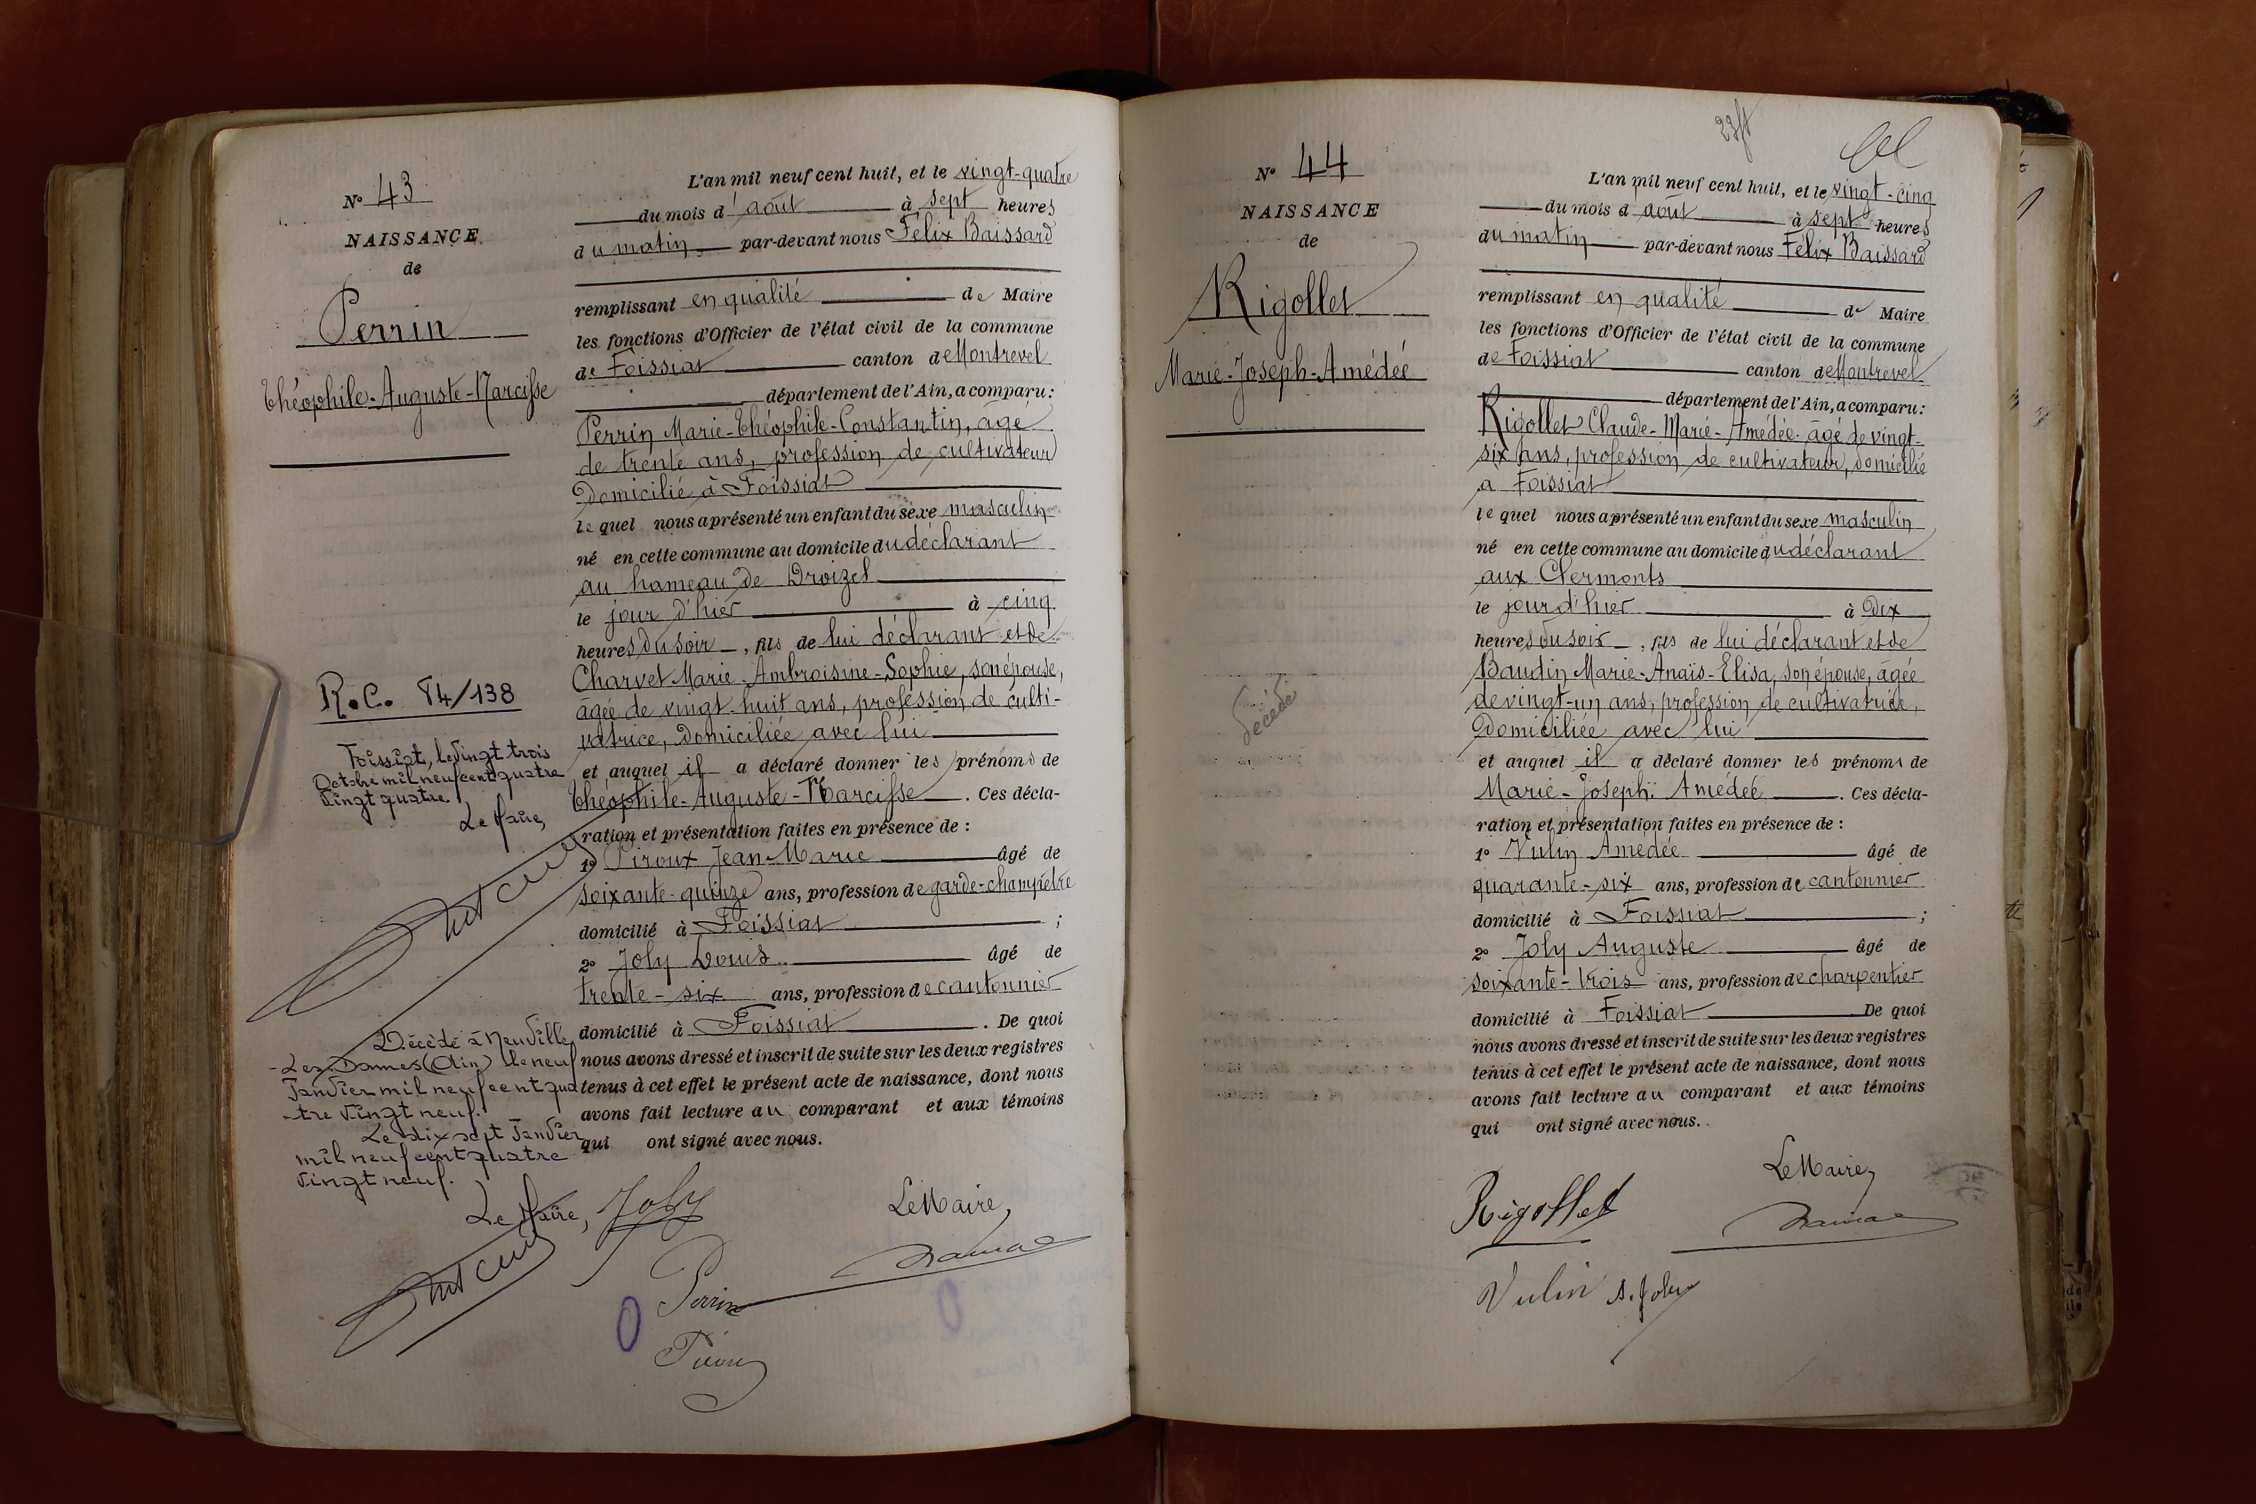 N° 43
NAISSANCE
de
Perrin
Théophile-Auguste-Narcisse
R.C. 84/138
Foissiat, le vingt trois
Octobre mil neuf cent quatre
vingt quatre
Le Maire,
Décédé à Neuville
-Les-Dames (Ain) le neuf
Janvier mil neuf cent qua
-tre vingt neuf.
Le dix sept Janvier
mil neuf cent quatre
vingt neuf.
Le Maire,
L'an mil neuf cent huit, et le vingt-quatre
du mois d'août à sept heures
du matin par-devant nous Félix Baissard
remplissant en qualité de Maire
les fonctions d'Officier de l'état civil de la commune
de Foissiat canton de Montrevel
département de l'Ain, a comparu:
Perrin Marie-Théophile-Constantin, âgé
de trente ans, profession de cultivateur
domicilié à Foissiat
lequel nous a présenté un enfant du sexe masculin
né en cette commune au domicile du déclarant
au hameau de Droizel
le jour d'hier à cinq
heures du soir, fils de lui déclarant et de
Charvet Marie-Ambroisine-Sophie, son épouse,
âgée de vingt-huit ans, profession de culti-
vatrice, domiciliée avec lui
et auquel il a déclaré donner les prénoms de
Théophile-Auguste-Narcisse. Ces décla-
ration et présentation faites en présence de :
1° Piroux Jean-Marie âgé de
soixante-quinze ans, profession de garde-champêtre
domicilié à Foissiat ;
2° Joly Louis âgé de
trente-six ans, profession de cantonnier
domicilié à Foissiat. De quoi
nous avons dressé et inscrit de suite sur les deux registres
tenus à cet effet le présent acte de naissance, dont nous
avons fait lecture au comparant et aux témoins
qui ont signé avec nous.
Joly
Le Maire,
Perrin
N° 44
NAISSANCE
de
Rigollet
Marie-Joseph-Amédée
décédé
L'an mil neuf cent huit, et le vingt-cinq
du mois d'août à sept heures
du matin par-devant nous Félix Baissard
remplissant en qualité de Maire
les fonctions d'Officier de l'état civil de la commune
de Foissiat canton de Montrevel
département de l'Ain, a comparu:
Rigollet Claude-Marie-Amédée âgé de vingt-
six ans, profession de cultivateur, domicilié
à Foissiat
lequel nous a présenté un enfant du sexe masculin
né en cette commune au domicile du déclarant
aux Clermonts
le jour d'hier à dix
heures du soir, fils de lui déclarant et de
Baudin Marie-Anaïs-Elisa, son épouse, âgée
de vingt-un ans, profession de cultivatrice,
domiciliée avec lui
et auquel il a déclaré donner les prénoms de
Marie-Joseph-Amédée. Ces décla-
ration et présentation faites en présence de :
1° Vulin Amédée âgé de
quarante-six ans, profession de cantonnier
domicilié à Foissiat ;
2° Joly Auguste âgé de
soixante-trois ans, profession de charpentier
domicilié à Foissiat De quoi
nous avons dressé et inscrit de suite sur les deux registres
tenus à cet effet le présent acte de naissance, dont nous
avons fait lecture au comparant et aux témoins
qui ont signé avec nous.
Le Maire,
Rigollet
Vulin A. Joly